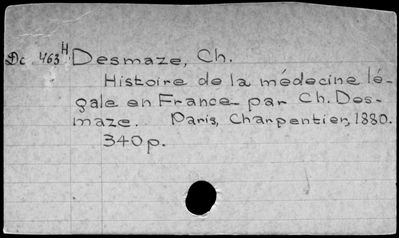 Dc 463 H Desmaze, Ch.
Histoire de la médecine lé-
gale en France par Ch. Des-
maze. Paris, Charpentier, 1880.
340 p.